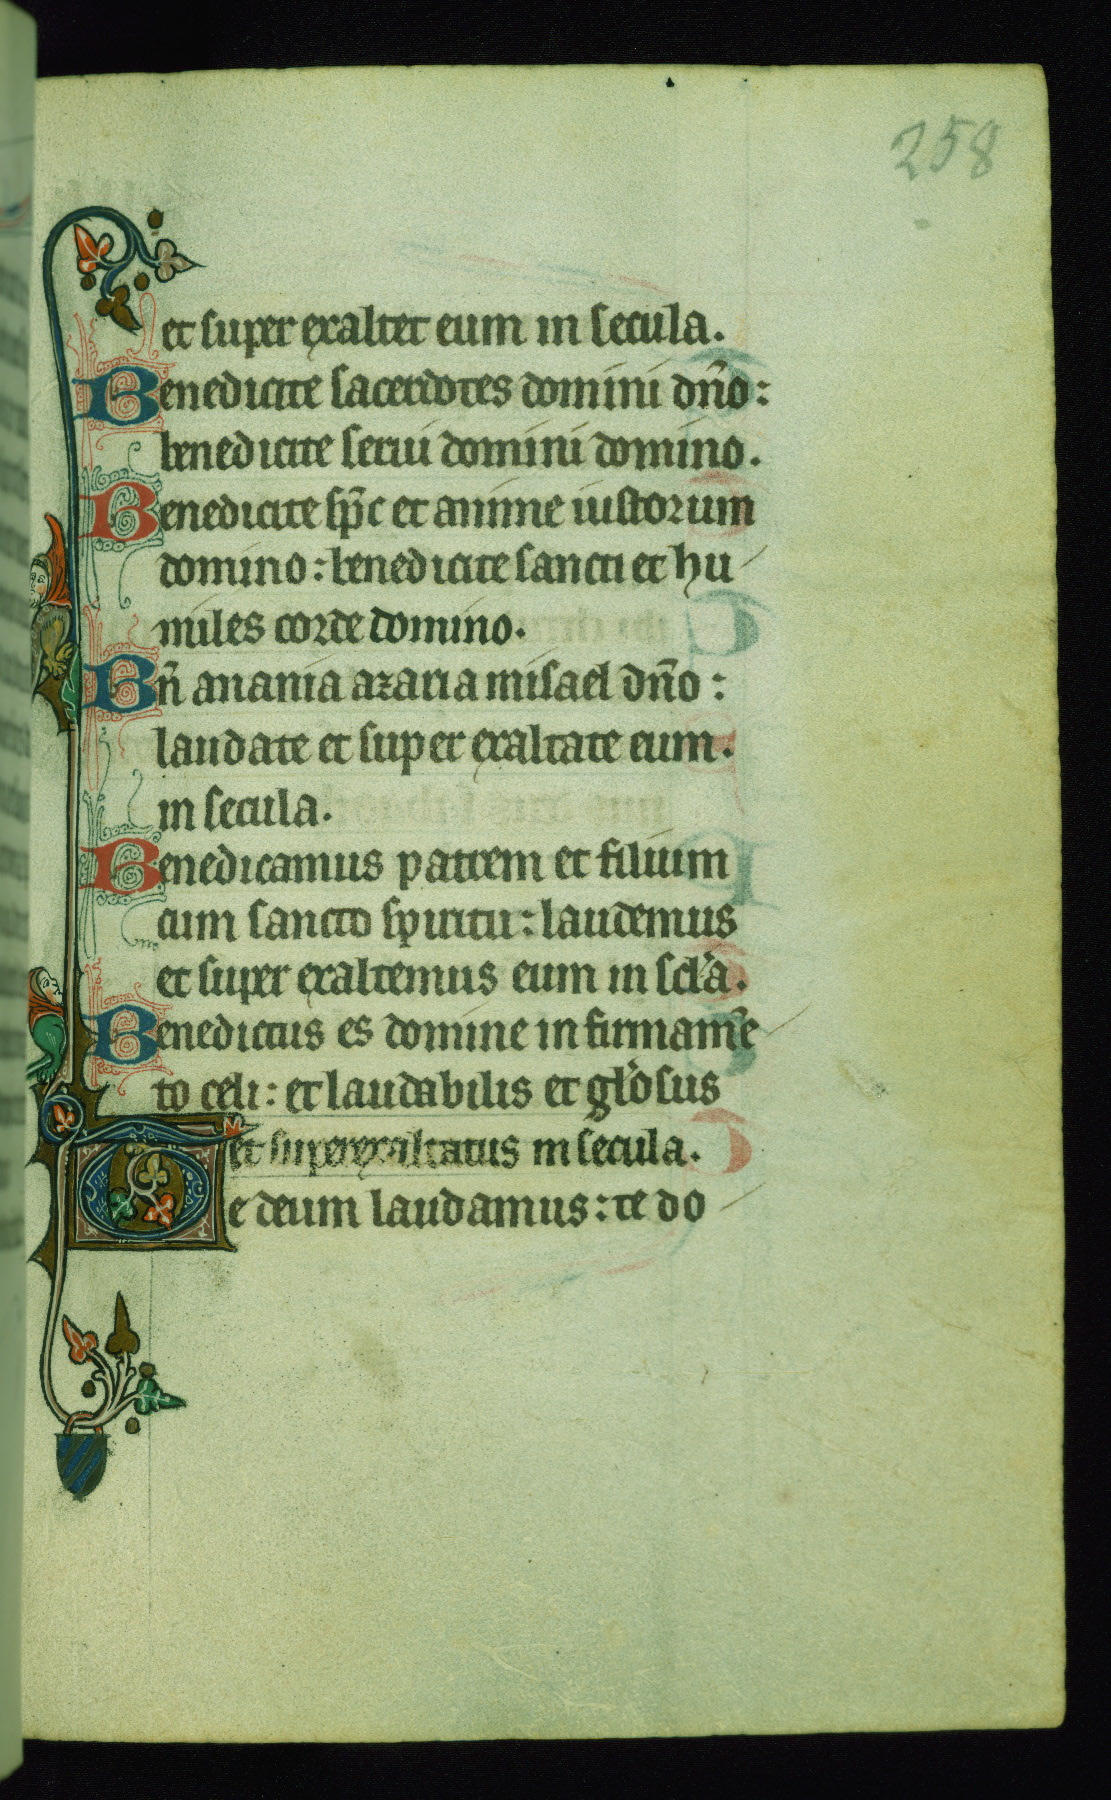 258
et super exaltet eum in secula.
Benedicite sacerdotes domini dn̄o:
benedicite serui domini domino.
Benedicite sp̄c et anime iustorum
domino: benedicite sancti et hu
miles corde domino.
Bn̄ anania azaria misael dn̄o:
laudate et super exaltate eum.
in secula.
Benedicamus patrem et filium
cum sancto spiritu: laudemus
et super exaltemus eum in scl'a.
Benedictus es domine in firmam̄e
to celi: et laudabilis et gl'osus
et superexaltatus in secula.
Te deum laudamus: te do